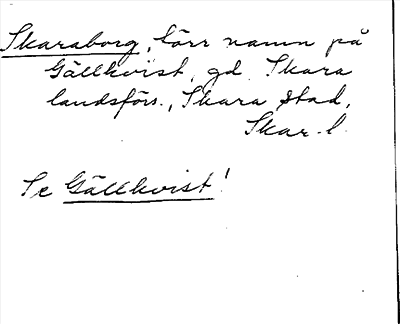 Skaraborg, förr namn på
Gällkvist, gd. Skara
landsförs., Skara stad,
Skar. l.
Se Gällkvist!